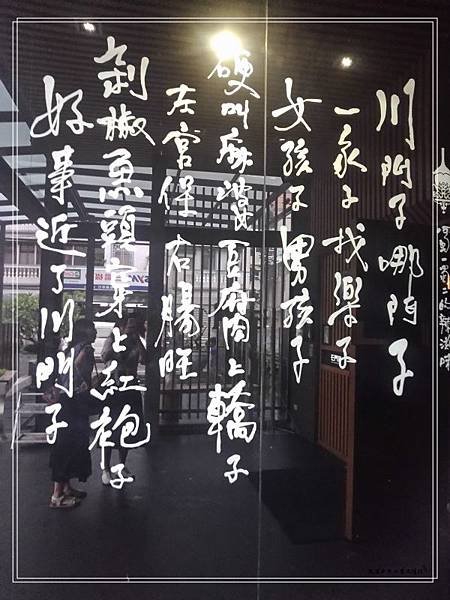 川門子哪門子
一家子找樂子
女孩子男孩子
硬叫麻婆豆腐上轎子
左宮保右腸旺
剁椒魚頭穿上紅袍子
好事近了川門子